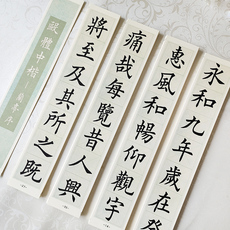 永和九年歲在癸
惠風和暢仰觀宇
痛哉每覽昔人興
將至及其所之既
歐體中楷
蘭亭序